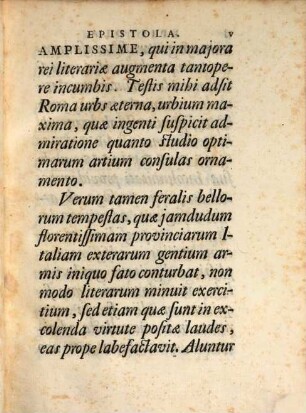 EPISTOLA. v
AMPLISSIME, qui in majora
rei literariæ augmenta tantope-
re incumbis. Testis mihi adsit
Roma urbs æterna, urbium ma-
xima, quæ ingenti suspicit ad-
miratione quanto studio opti-
marum artium consulas orna-
mento.
Verum tamen feralis bello-
rum tempestas, quæ jamdudum
florentissimam provinciarum I-
taliam exterarum gentium ar-
mis iniquo fato conturbat, non
modo literarum minuit exerci-
tium, sed etiam quæ sunt in ex-
colenda virtute positæ laudes,
eas prope labefactavit. Aluntur